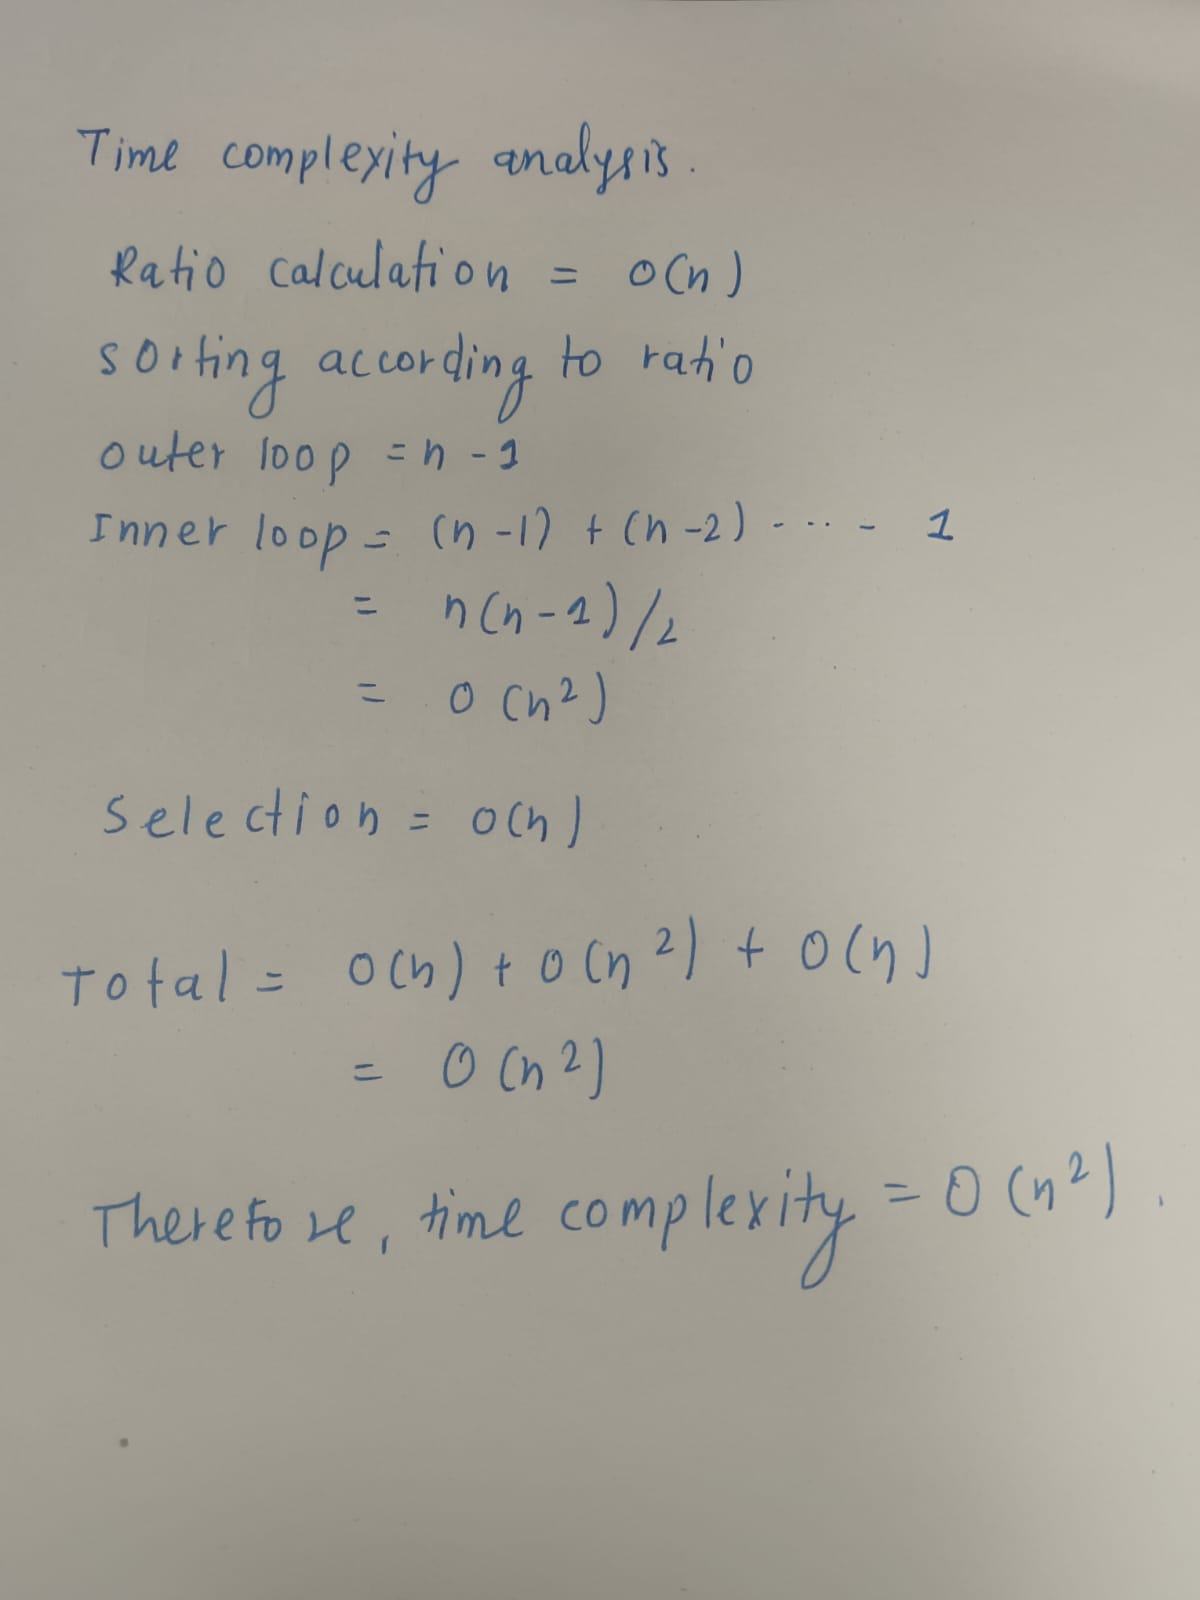 Time complexity analysis.
Ratio calculation = O(n)
sorting according to ratio
outer loop = n - 1
Inner loop = (n-1) + (n-2) - - - - 1
= n(n-1)/2
= O(n²)
Selection = O(n)
Total = O(n) + O(n²) + O(n)
= O(n²)
Therefore, time complexity = O(n²).